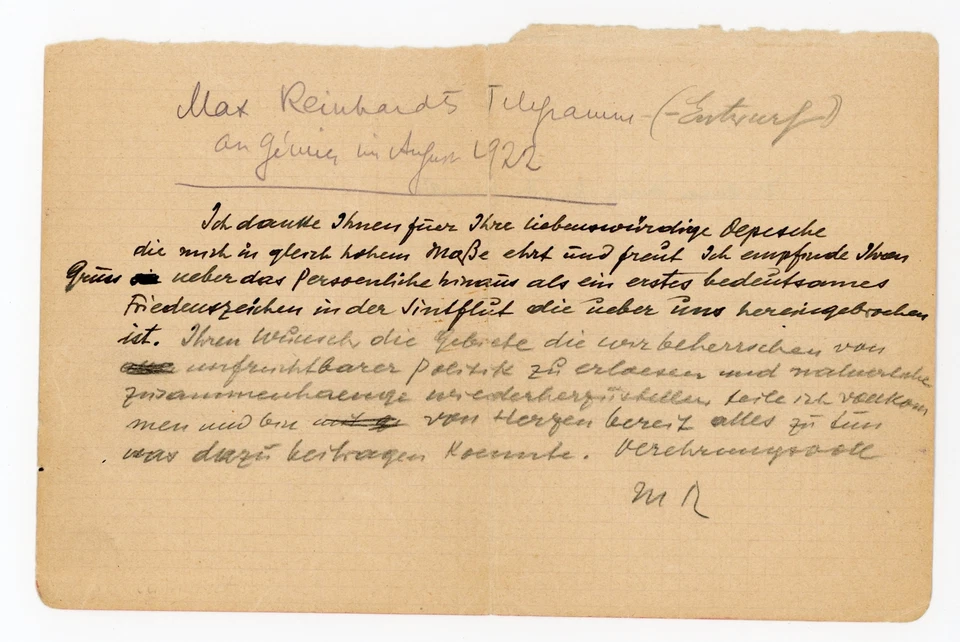 Max Reinhardts Telegramm (-Entwurf)
an Gémier im August 1922
Ich danke Ihnen fuer Ihre liebenswürdige Depesche
die mich in gleich hohem Maße ehrt und freut Ich empfinde Ihren
Gruss ueber das Persoenliche hinaus als ein erstes bedeutsames
Friedenszeichen in der Sintflut die ueber uns hereingebrochen
ist. Ihren Wunsch die Gebiete die wir beherrschen von
unfruchtbarer Politik zu erloesen und natuerliche
Zusammenhaenge wiederherzustellen teile ich vollkom
men und bin von Herzen bereit alles zu tun
was dazu beitragen koennte. Verehrungsvoll
M R